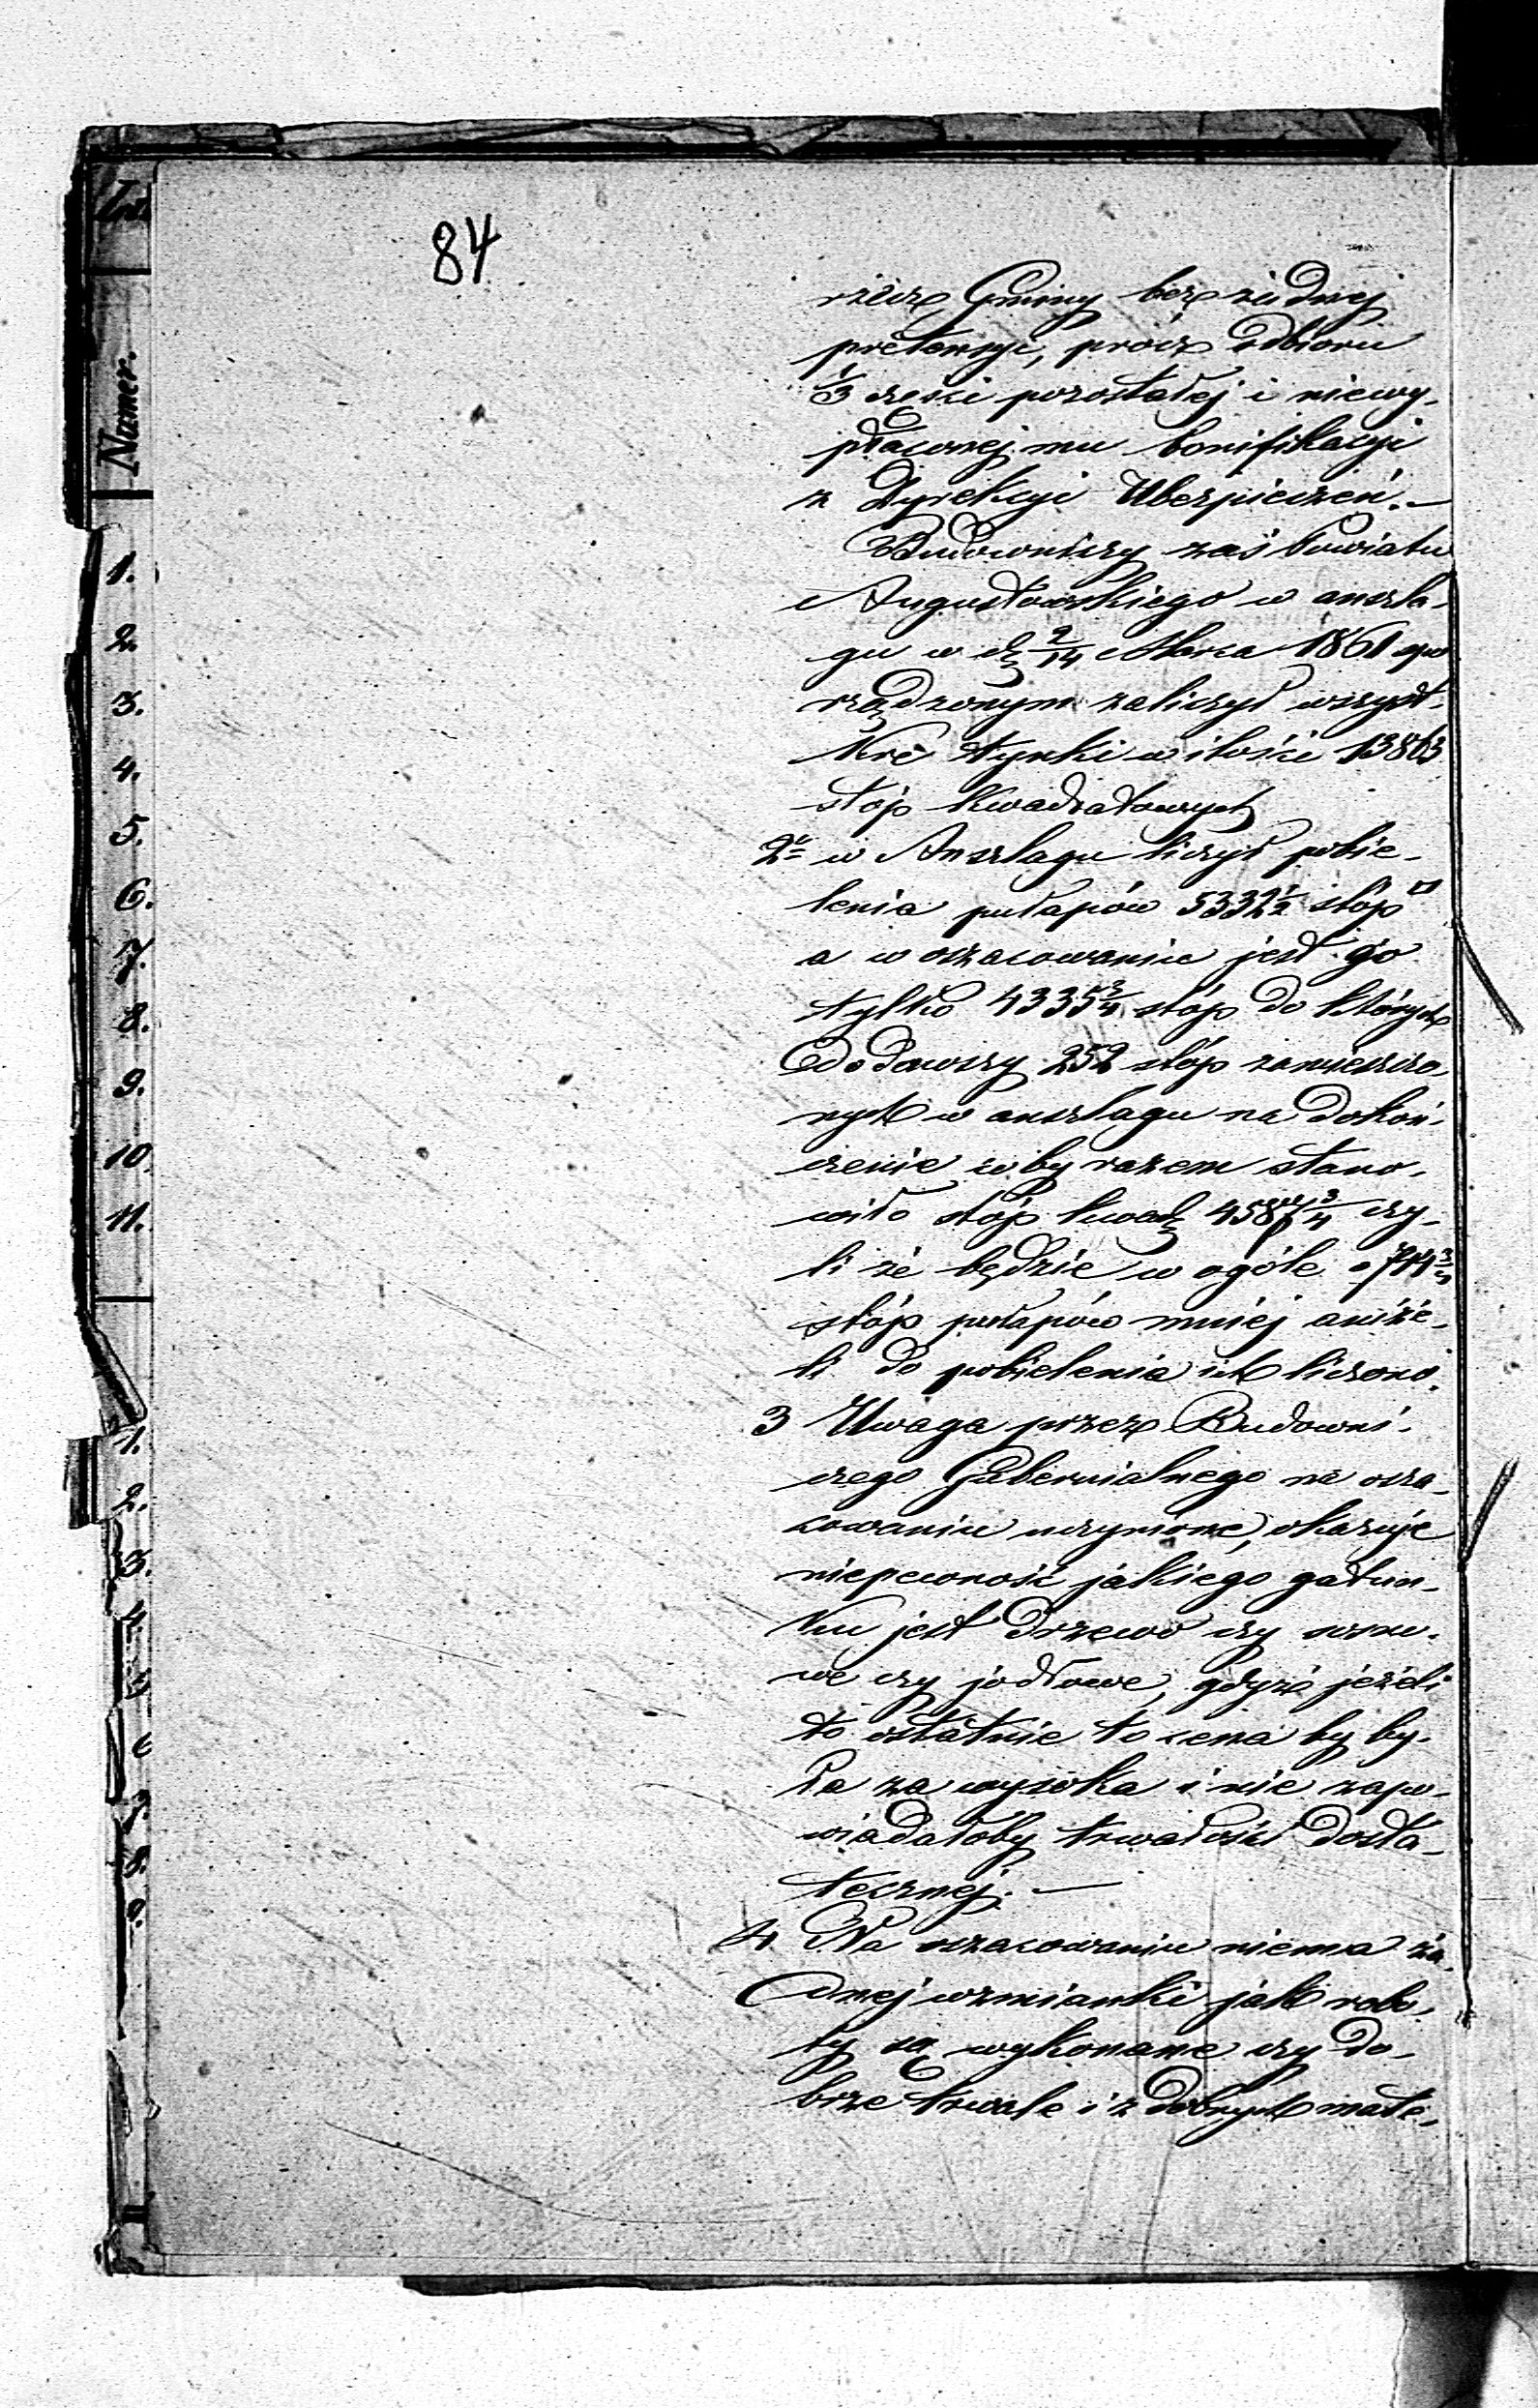 84
rzecz Gminy bez żadnej
pretensyi, prócz odbioru
1/3 części pozostałej i niewy-
płaconej mu bonifikacyi
z Dyrekcyi Ubezpieczeń. —
Budowniczy zaś Powiatu
Augustowskiego w anszla-
gu w d. 2/14 Marca 1861 spo
rządzonym zaliczył wszyst-
kie tynki w ilości 13863
stóp kwadratowych
2e w Anszlagu liczył pobie-
lenia pułapów 5332 1/2 stóp □
a w oszacowaniu jest go
tylko 4335 3/4 stóp do których
dodawszy 252 stóp zamieszczo-
nych w anszlagu na dokoń-
czenie coby razem stano-
wiło stóp kwad 4587 3/4 czy-
li że będzie w ogóle o 744 3/4
stóp pułapów mniej aniże-
li do pobielenia ich liczono.
3 Uwaga przez Budowni-
czego Gubernialnego na osza-
cowaniu uczynione, okazuje
niepewność jakiego gatun-
ku jest drzewo czy sosno-
we czy jodłowe, gdyż jeżeli
to ostatnie to cena by by-
ła za wysoka i nie zapo-
wiadałoby trwałości dosta-
tecznej. —
4 Na oszacowaniu niema ża-
dnej wzmianki jak robo-
ty są wykonane czy do-
brze trwale i z dobrych mate-
Numer.
1.
2.
3.
4.
5.
6.
7.
8.
9.
10.
11.
1.
2.
3.
4.
5
6
7.
8.
9.